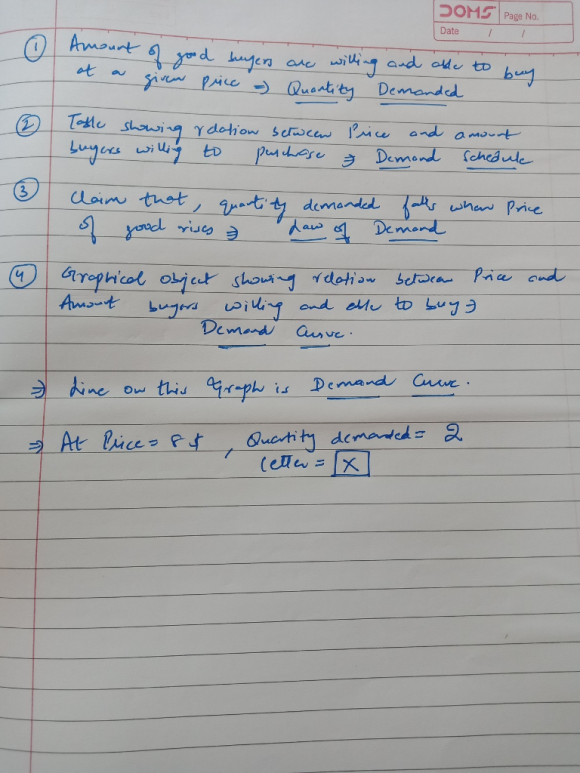 DOMS Page No.
Date / /
① Amount of good buyers are willing and able to buy
at a given price ⇒ Quantity Demanded
② Table showing relation between Price and amount
buyers willig to purchase ⇒ Demand Schedule
③ Claim that, quantity demanded falls when Price
of good rises ⇒ Law of Demand
④ Graphical object showing relation between Price and
Amount buyers willing and able to buy ⇒
Demand Curve.
⇒ Line on this Graph is Demand Curve.
⇒ At Price = 8 $ , Quantity demanded = 2
letter = X